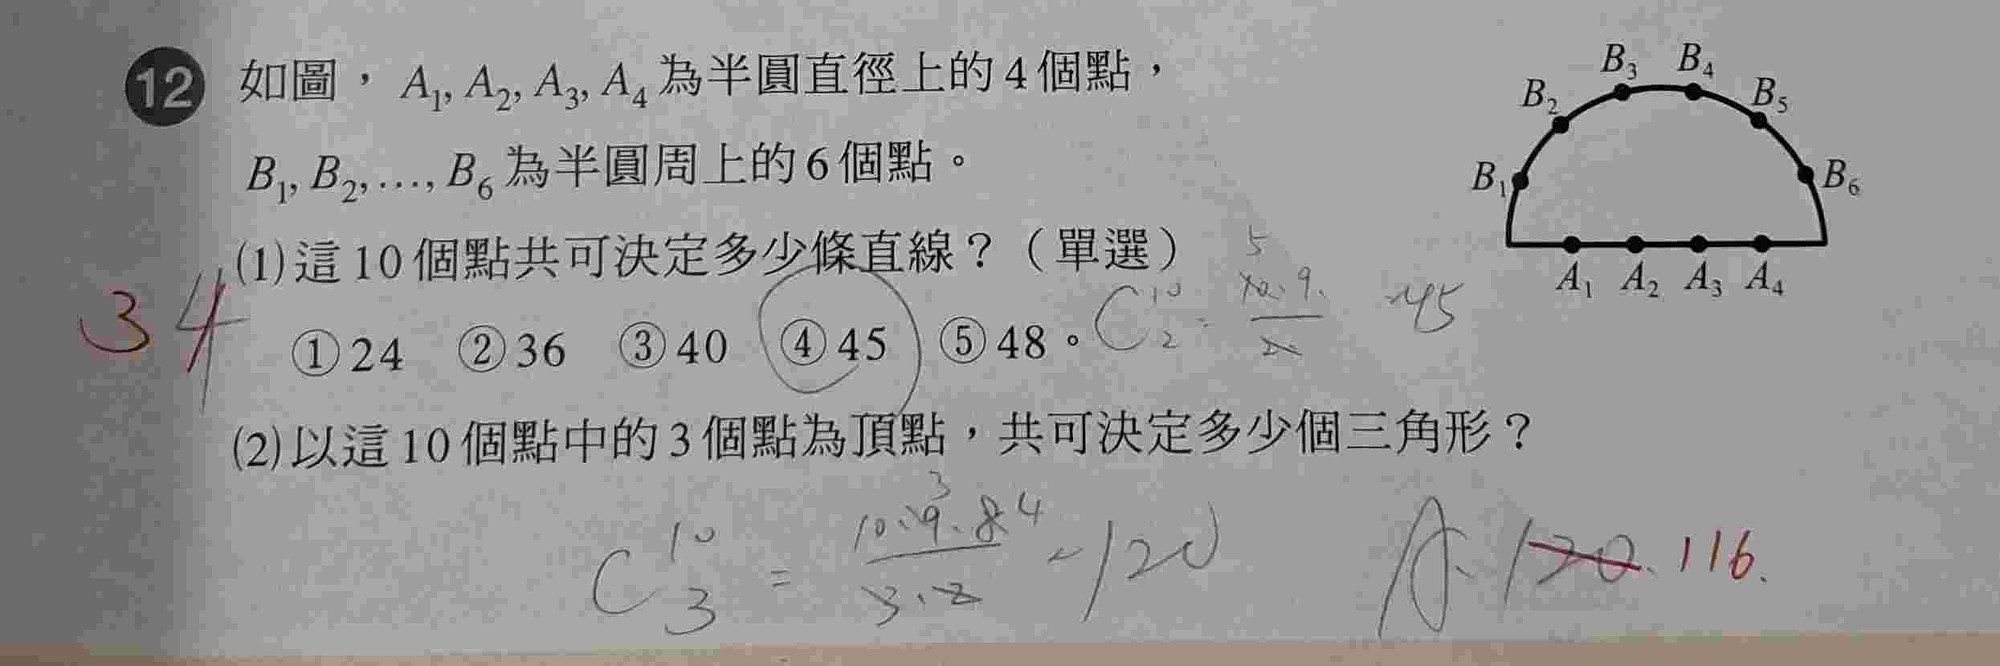 12 如圖，A₁, A₂, A₃, A₄ 為半圓直徑上的 4 個點，
B₁, B₂, ..., B₆ 為半圓周上的 6 個點。
B₁ B₂ B₃ B₄ B₅ B₆
A₁ A₂ A₃ A₄
(1) 這 10 個點共可決定多少條直線？（單選）
3 4
① 24 ② 36 ③ 40 ④ 45 ⑤ 48。
C 10 2 = 10·9 / 2 45
5
(2) 以這 10 個點中的 3 個點為頂點，共可決定多少個三角形？
C 10 3 = 10·9·8 / 3·2 = 120
3 4
A. 120. 116.